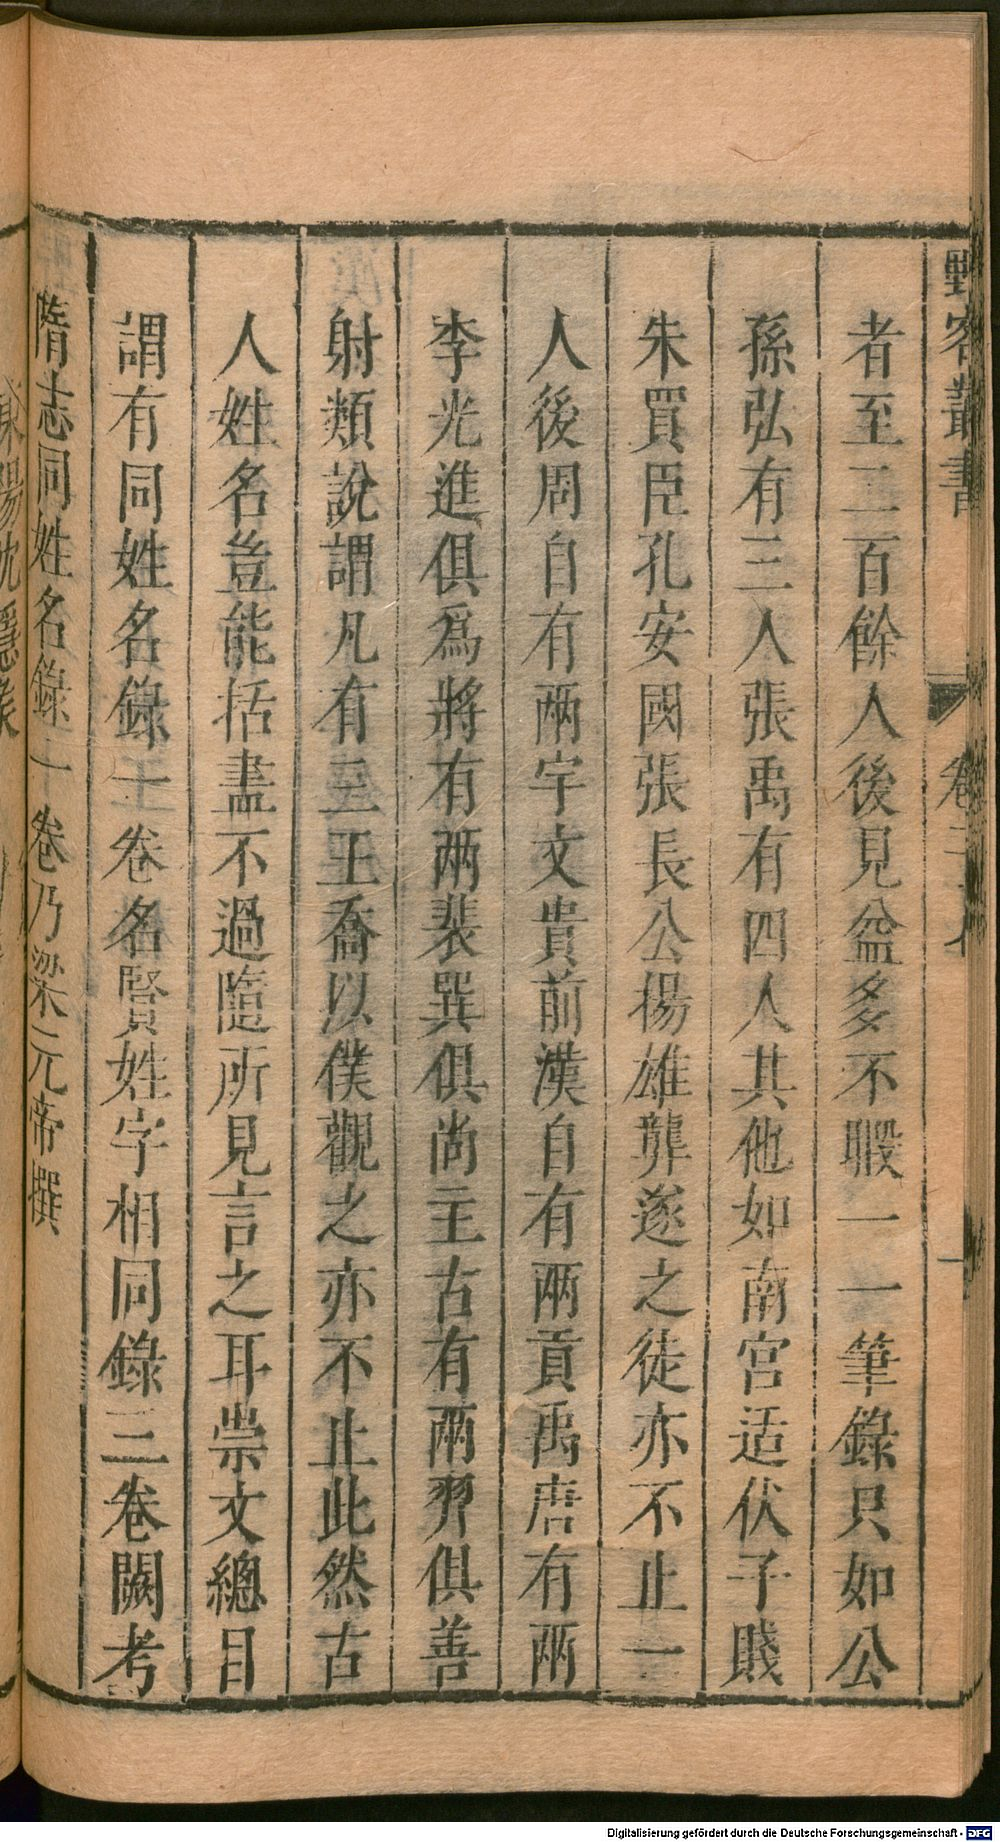 野客叢書
卷二十九
一
者至二百餘人後見益多不暇一一筆錄只如公
孫弘有三人張禹有四人其他如南宮适伏子賤
朱買臣孔安國張長公揚雄龔遂之徒亦不止一
人後周自有兩宇文貴前漢自有兩貢禹唐有兩
李光進俱爲將有兩裴巽俱尚主古有兩羿俱善
射類說謂凡有三王喬以僕觀之亦不止此然古
人姓名豈能括盡不過隨所見言之耳崇文總目
謂有同姓名錄十卷名賢姓字相同錄三卷闕考
隋志同姓名錄一卷乃梁元帝撰
Digitalisierung gefördert durch die Deutsche Forschungsgemeinschaft - DFG